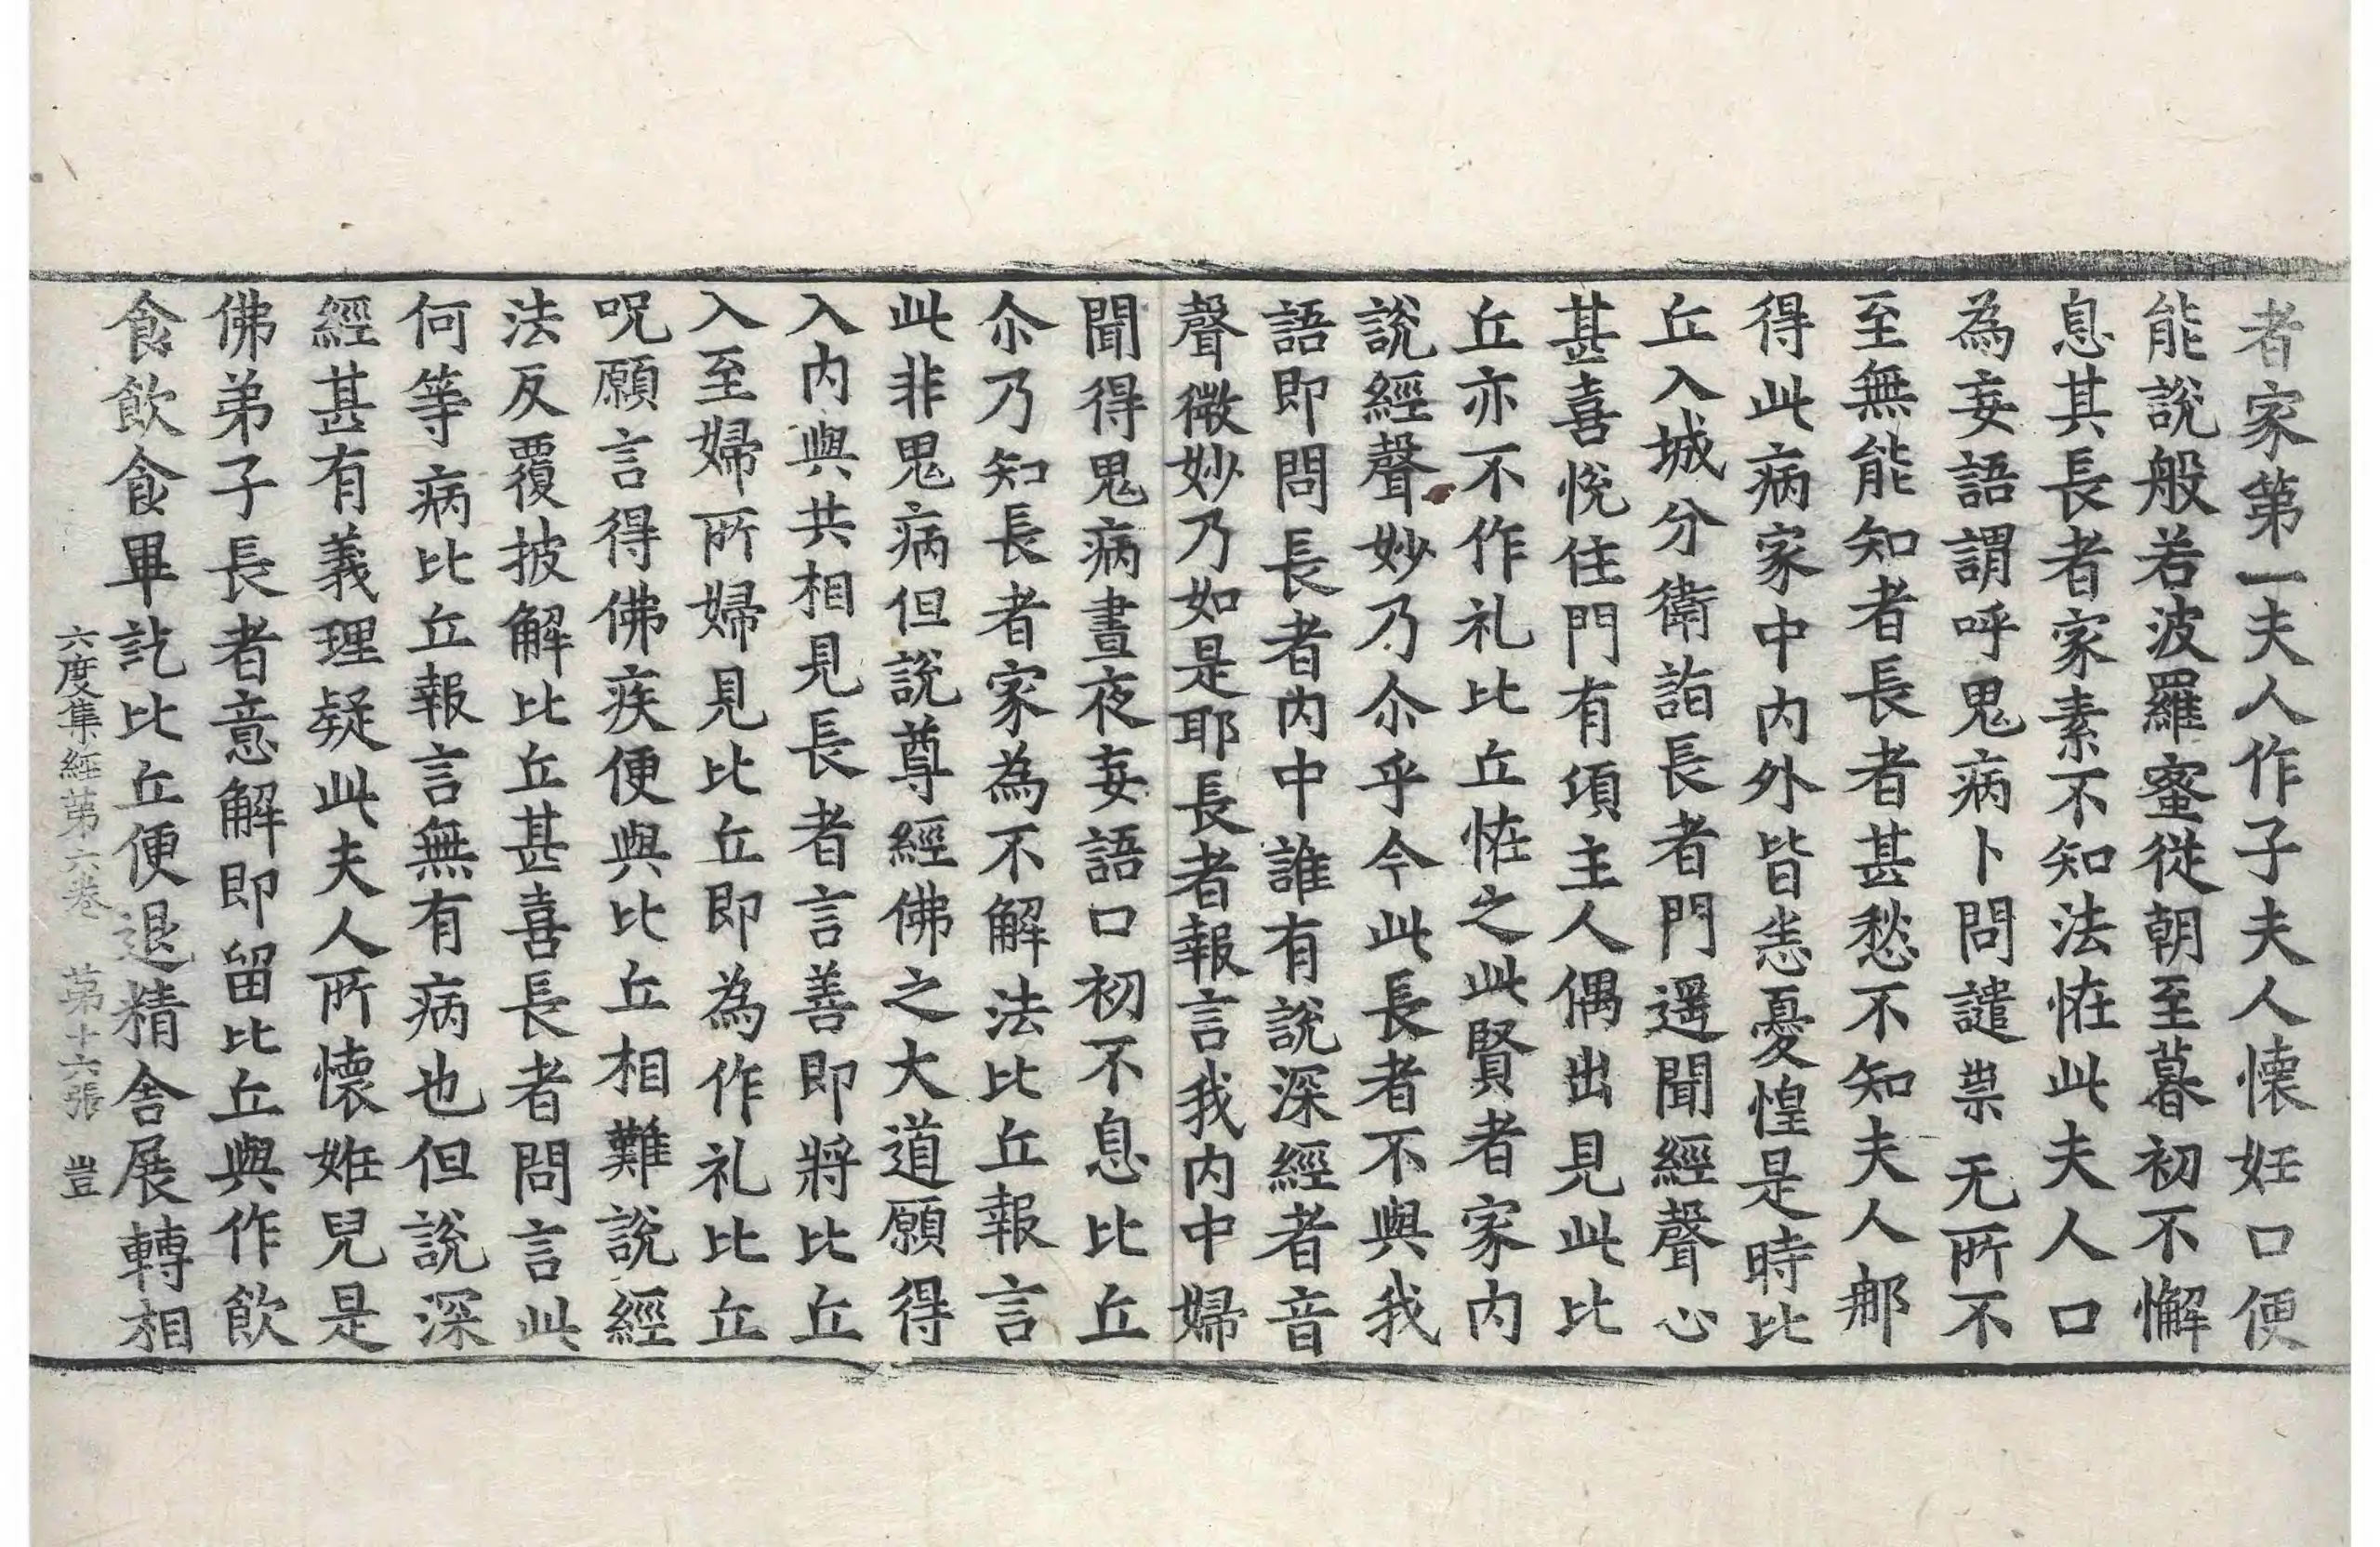 者家第一夫人作子夫人懷妊口便
能說般若波羅蜜從朝至暮初不懈
息其長者家素不知法恠此夫人口
為妄語謂呼鬼病卜問譴祟无所不
至無能知者長者甚愁不知夫人那
得此病家中內外皆恙憂惶是時比
丘入城分衛詣長者門遥聞經聲心
甚喜悅住門有項主人偶出見此比
丘亦不作礼比丘恠之此賢者家內
說經聲妙乃尒乎今此長者不與我
語即問長者內中誰有說深經者音
聲微妙乃如是耶長者報言我內中婦
聞得鬼病晝夜妄語口初不息比丘
尒乃知長者家為不解法比丘報言
此非鬼病但說尊經佛之大道願得
入內與共相見長者言善即將比丘
入至婦所婦見比丘即為作礼比丘
呪願言得佛疾便與比丘相難說經
法反覆披解比丘甚喜長者問言此
何等病比丘報言無有病也但說深
經甚有義理疑此夫人所懷姙兒是
佛弟子長者意解即留比丘與作飲
食飲食畢訖比丘便退精舍展轉相
六度集經第六卷 第十六張 豈